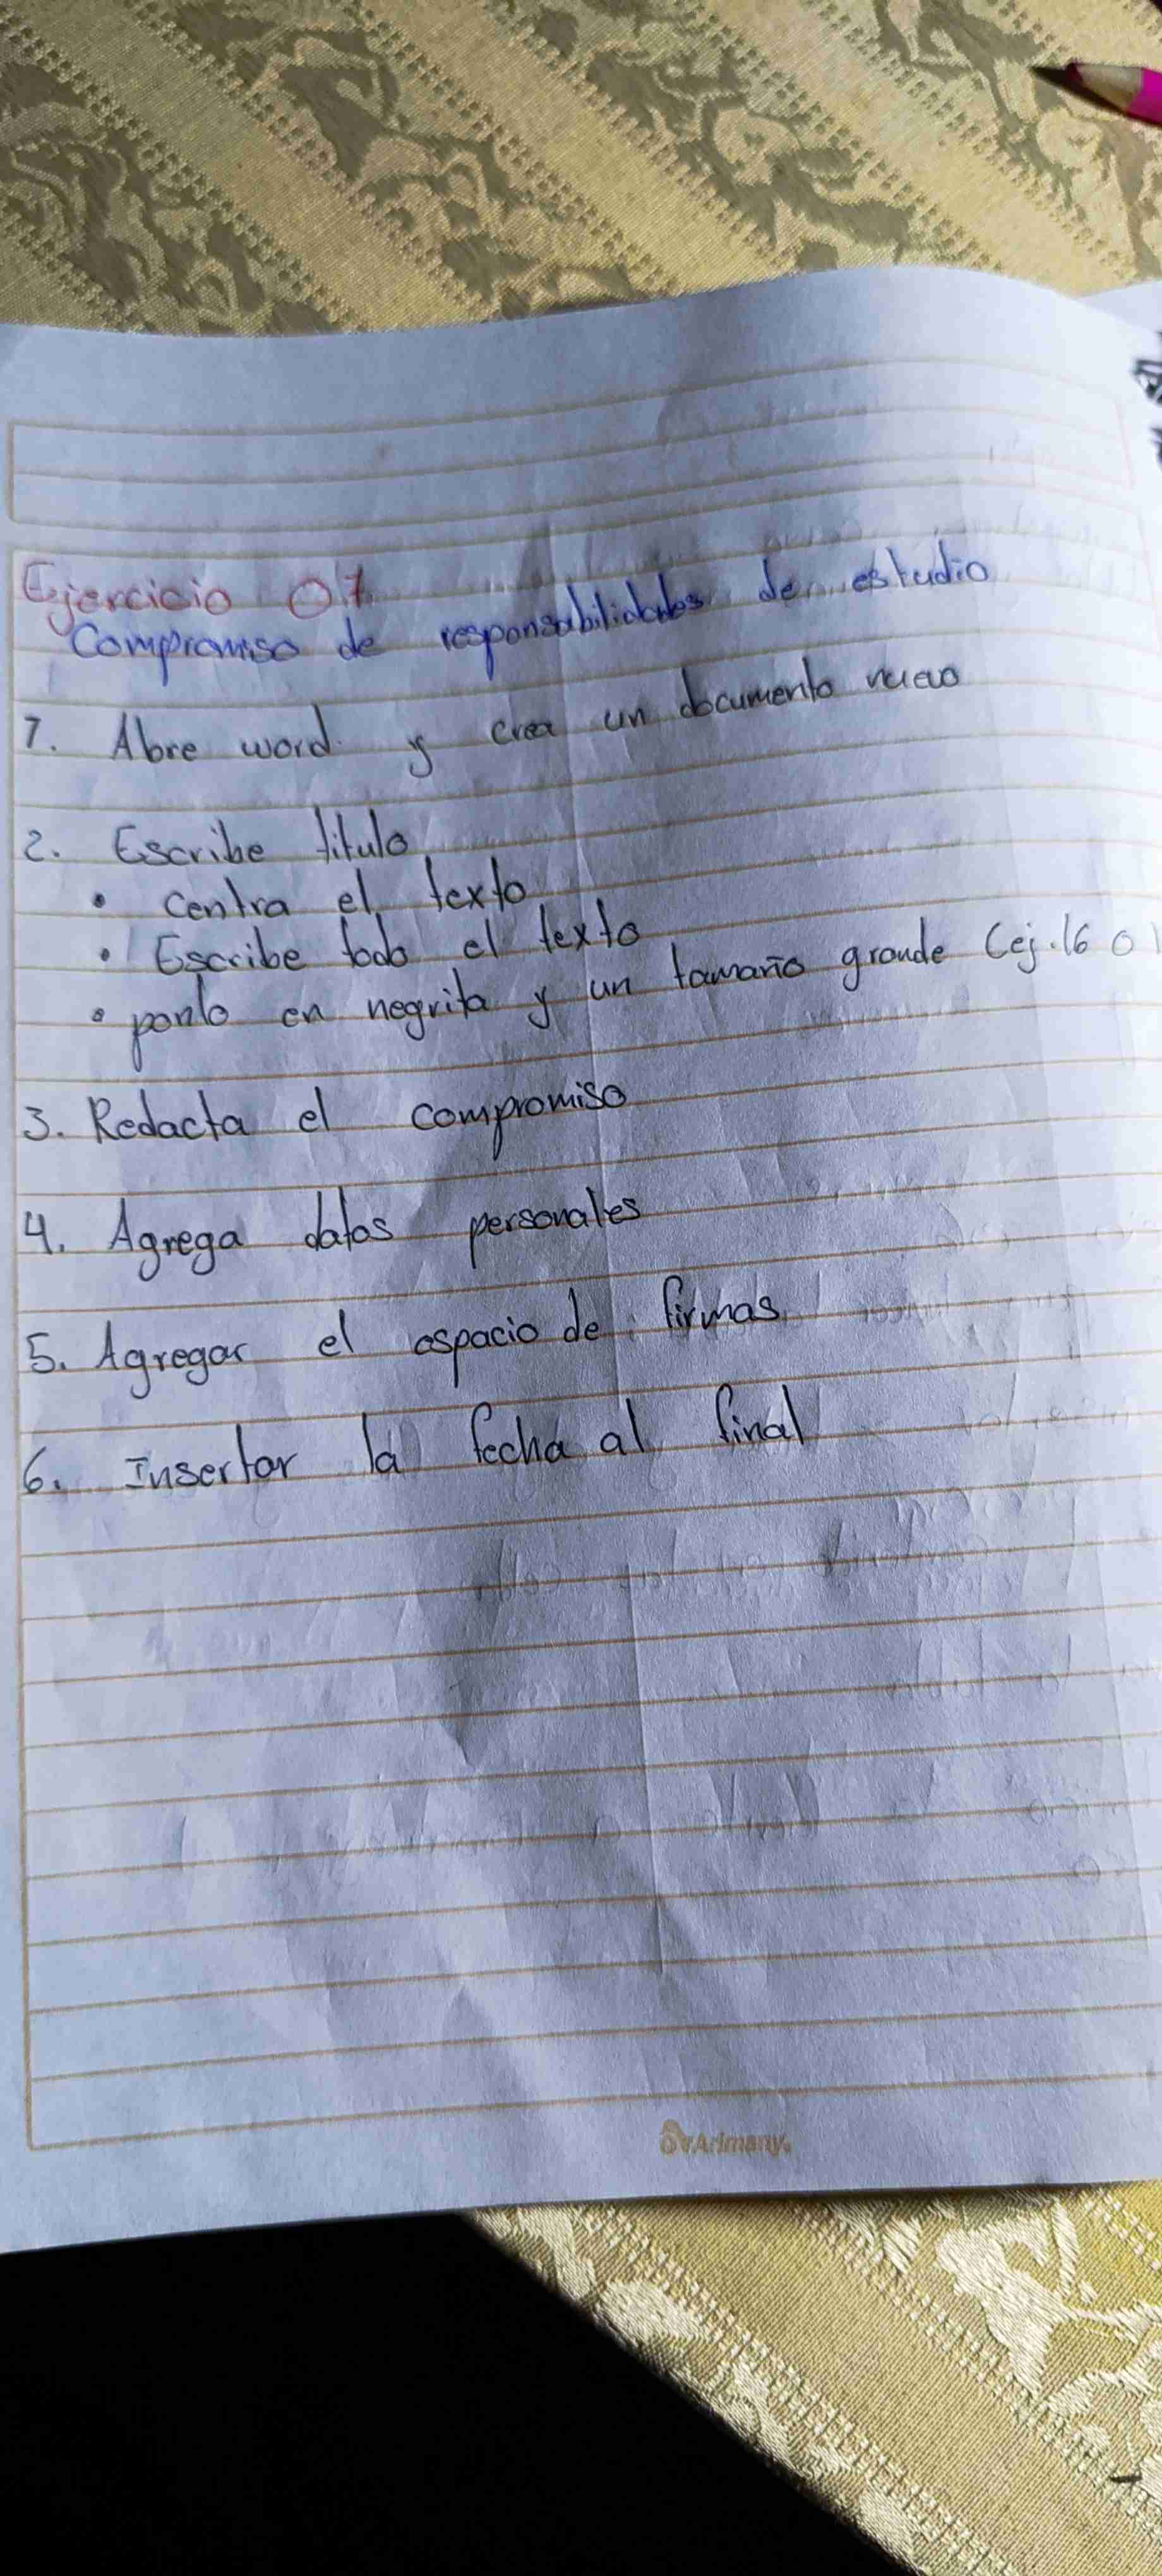 Ejercicio 01
Compromiso de responsabilidades de estudio
1. Abre word y crea un documento nuevo
2. Escribe titulo
• Centra el texto
• Escribe todo el texto
• ponlo en negrita y un tamaño grande (ej. 16 o
3. Redacta el compromiso
4. Agrega datos personales
5. Agregar el espacio de firmas
6. Insertar la fecha al final
Arimany.